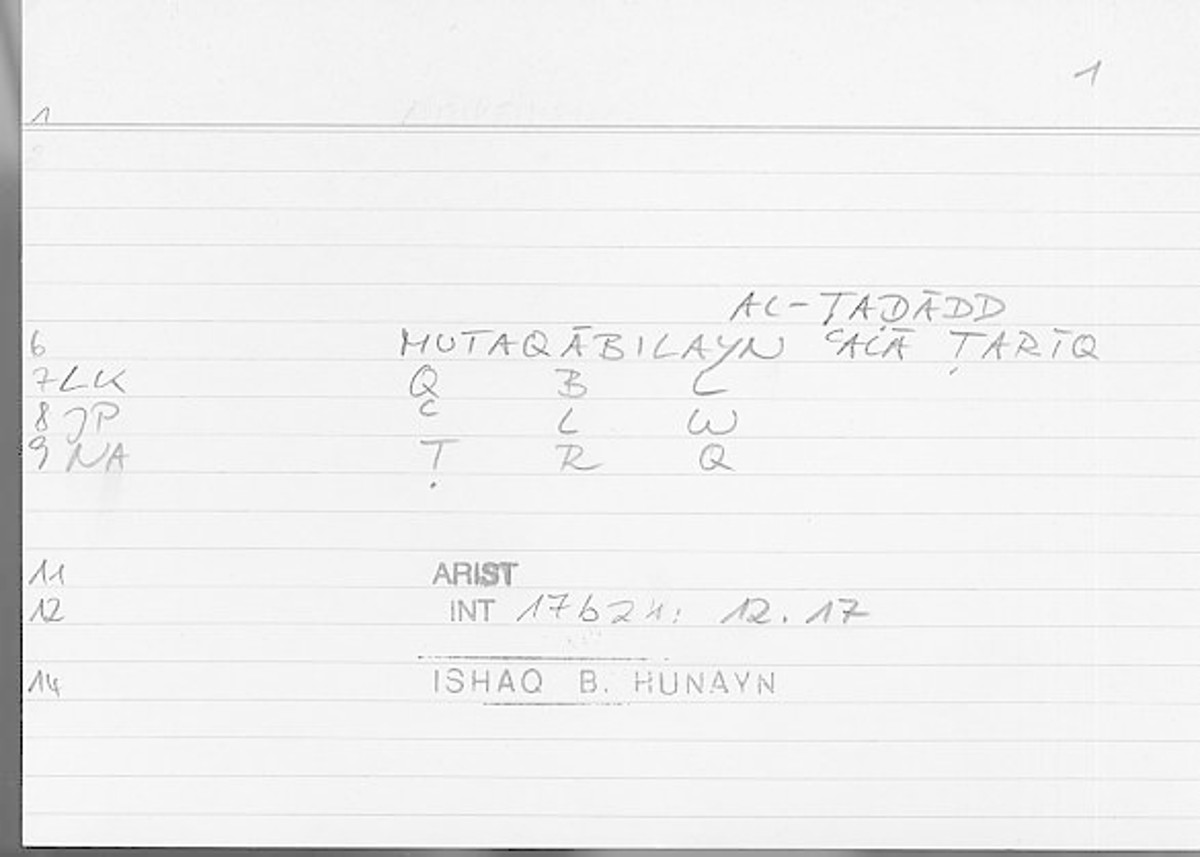 1
1
AL-TAḌĀDD
6 MUTAQĀBILAYN ʿALĀ ṬARĪQ
7 LK Q B L
8 JP ʿ L W
9 NA Ṭ R Q
11 ARIST
12 INT 17b24: 12.17
14 ISHAQ B. HUNAYN